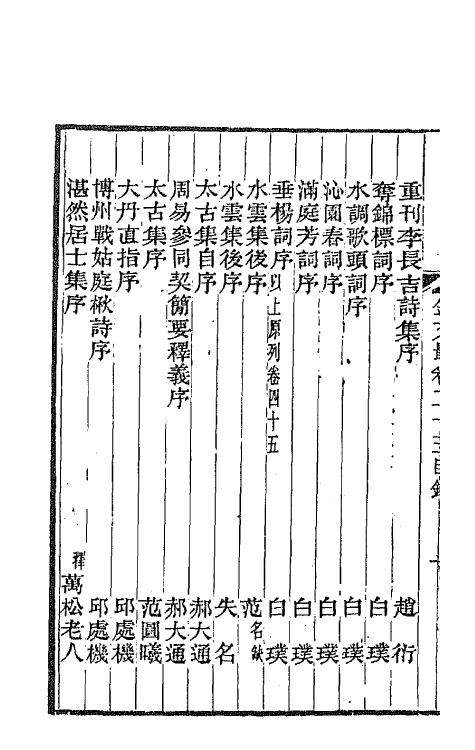 重刊李長吉詩集序 趙衍
奪錦標詞序 白璞
水調歌頭詞序 白璞
沁園春詞序 白璞
滿庭芳詞序 白璞
垂楊詞序以上原列卷四十五 白璞
水雲集後序 范名缺
水雲集後序 失名
太古集自序 郝大通
周易參同契簡要釋義序 郝大通
太古集序 范圓曦
大丹直指序 邱處機
博州戰姑庭楸詩序 邱處機
湛然居士集序 釋萬松老人